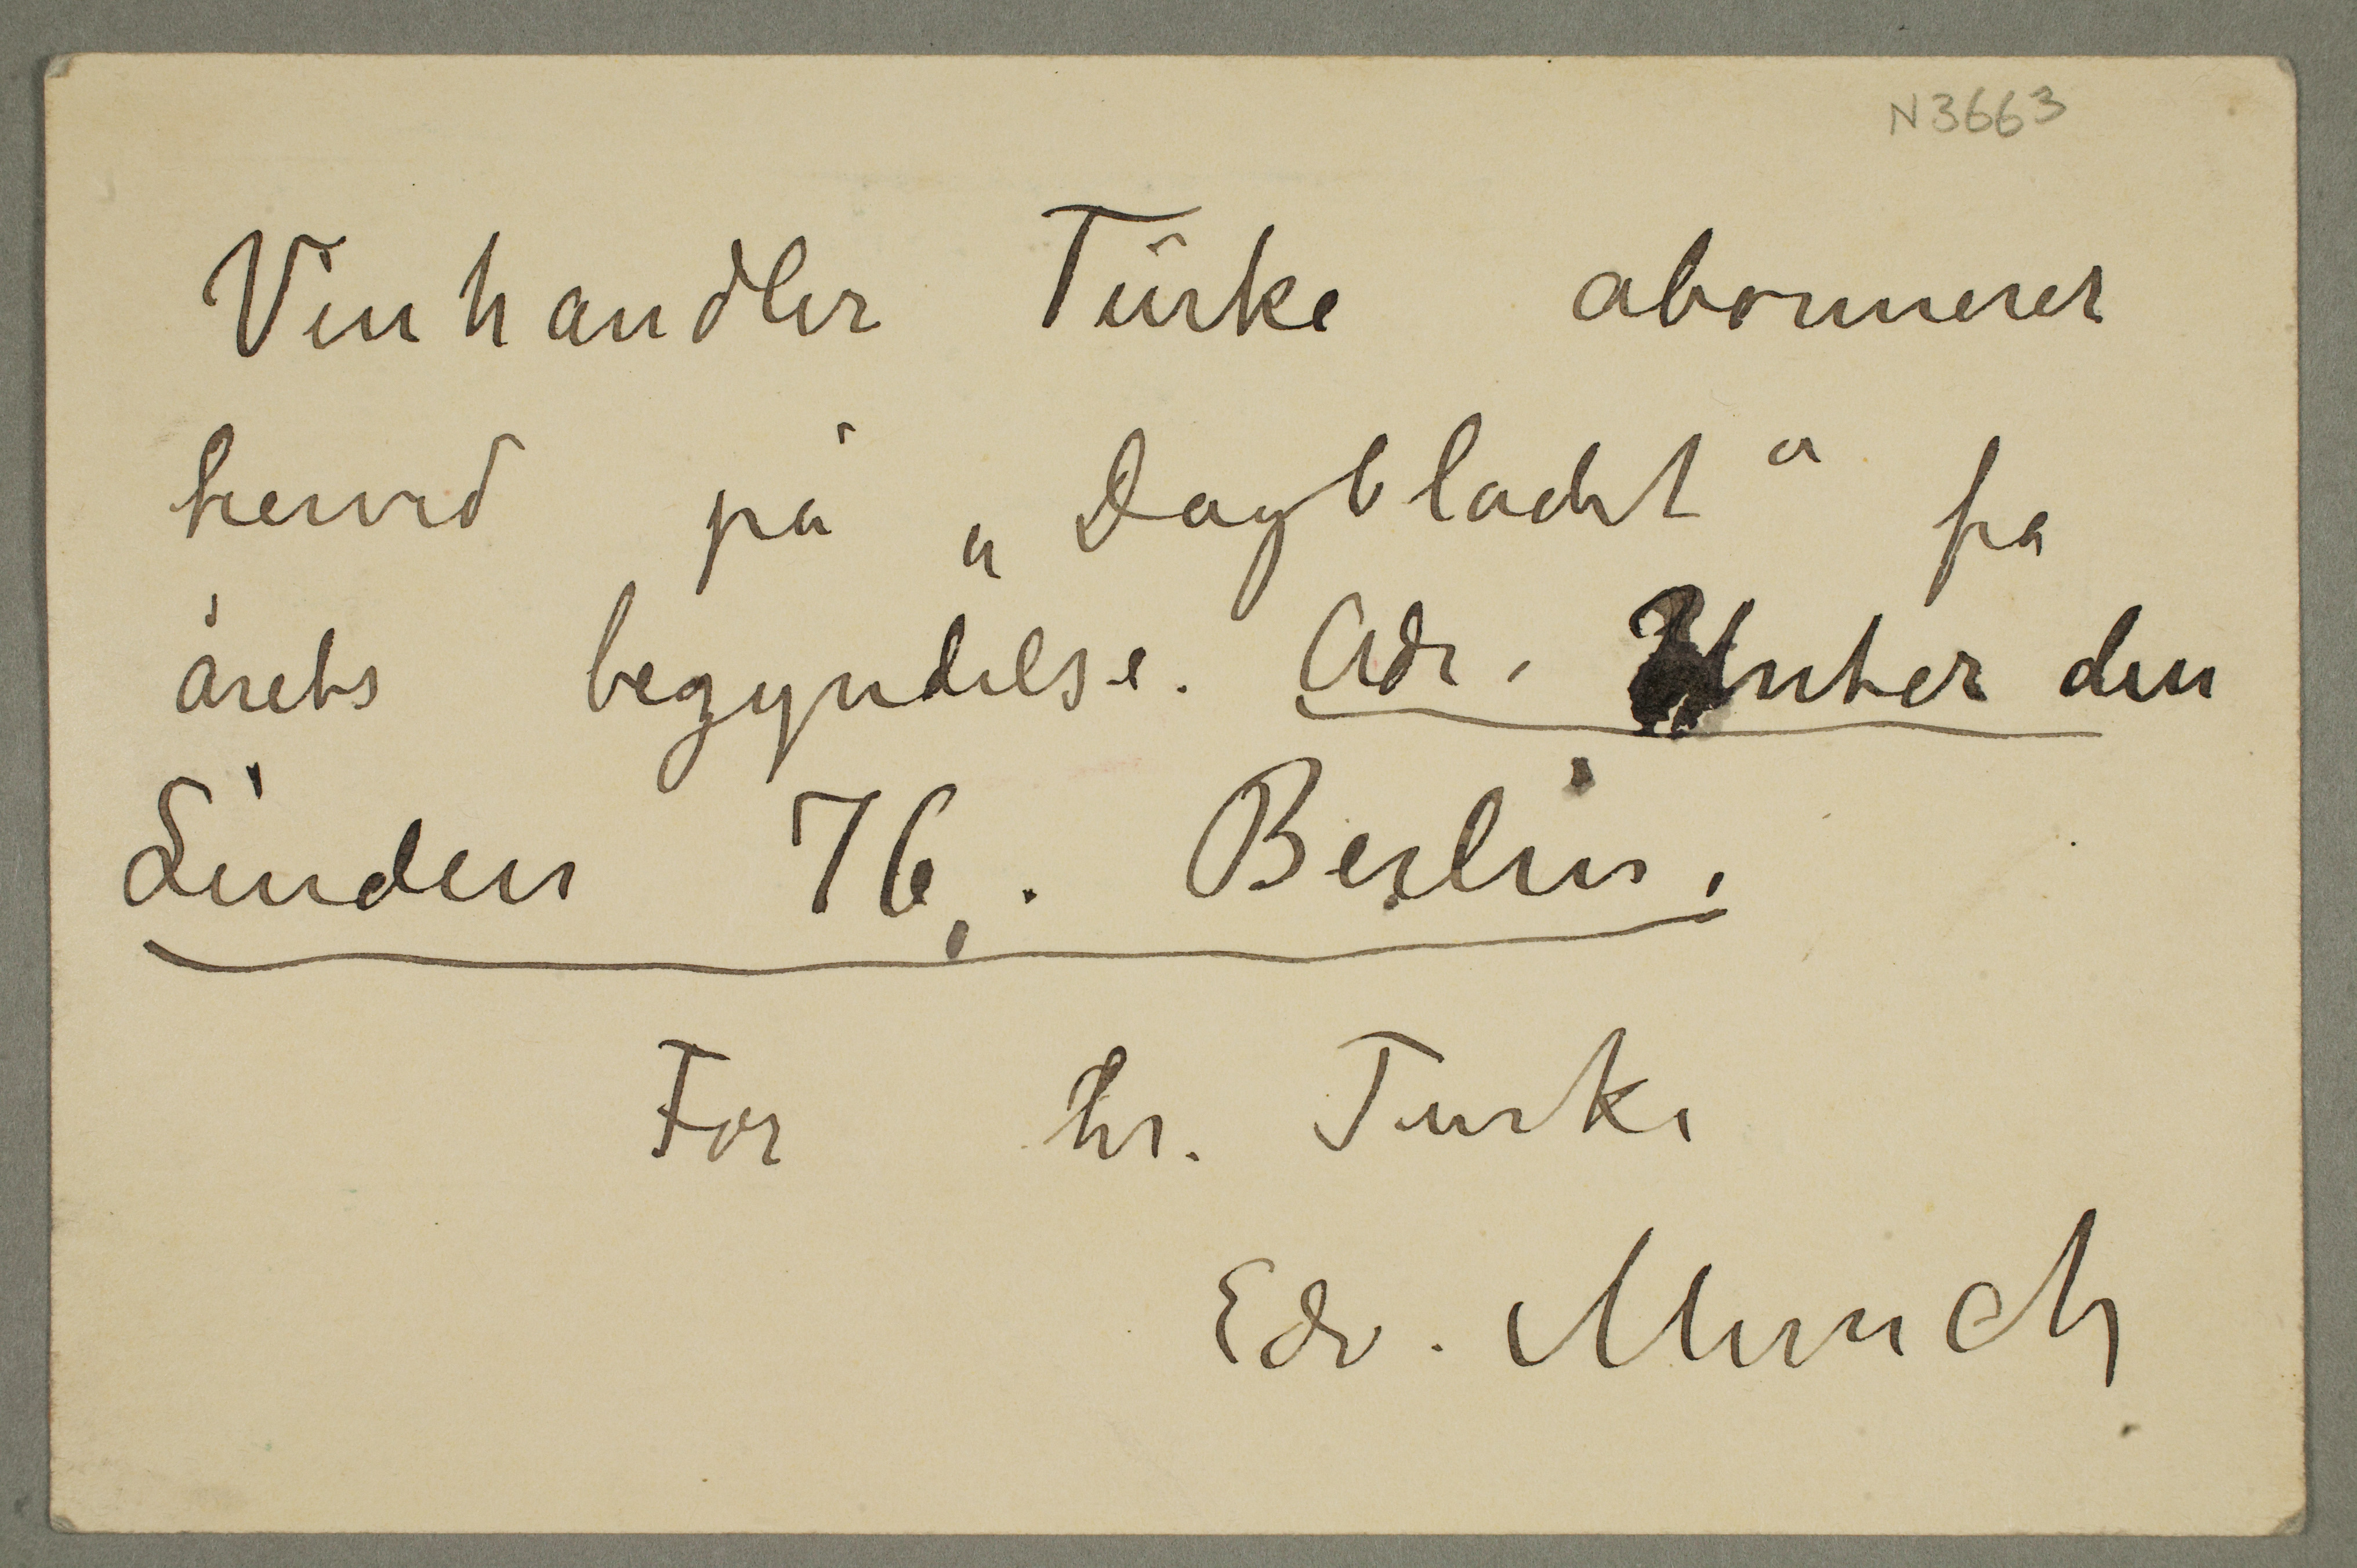 N 3663
Vinhandler Türke abonnerer
herved på „Dagbladet“ fra
årets begyndelse. Adr. Unter den
Linden 76. Berlin.
For hr. Turke
Edv. Munch